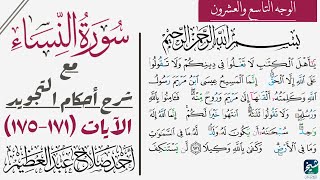 الوجه التاسع والعشرون
بِسْمِ اللَّهِ الرَّحْمَٰنِ الرَّحِيمِ
يَٰٓأَهْلَ ٱلْكِتَٰبِ لَا تَغْلُوا۟ فِى دِينِكُمْ وَلَا تَقُولُوا۟
عَلَى ٱللَّهِ إِلَّا ٱلْحَقَّ إِنَّمَا ٱلْمَسِيحُ عِيسَى ٱبْنُ مَرْيَمَ رَسُولُ
ٱللَّهِ وَكَلِمَتُهُۥٓ أَلْقَىٰهَآ إِلَىٰ مَرْيَمَ وَرُوحٌ مِّنْهُ فَـَٔامِنُوا۟ بِٱللَّهِ
وَرُسُلِهِۦ وَلَا تَقُولُوا۟ ثَلَٰثَةٌ ٱنتَهُوا۟ خَيْرًا لَّكُمْ إِنَّمَا ٱللَّهُ إِلَٰهٌ
وَٰحِدٌ سُبْحَٰنَهُۥٓ أَن يَكُونَ لَهُۥ وَلَدٌ لَّهُۥ مَا فِى ٱلسَّمَٰوَٰتِ
وَمَا فِى ٱلْأَرْضِ وَكَفَىٰ بِٱللَّهِ وَكِيلًا ١٧١ لَّن يَسْتَنكِفَ
سُورَةُ النِّسَاء
مع
شرح أحكام التجويد
الآيات (١٧١-١٧٥)
أحمد صلاح عبد العظيم